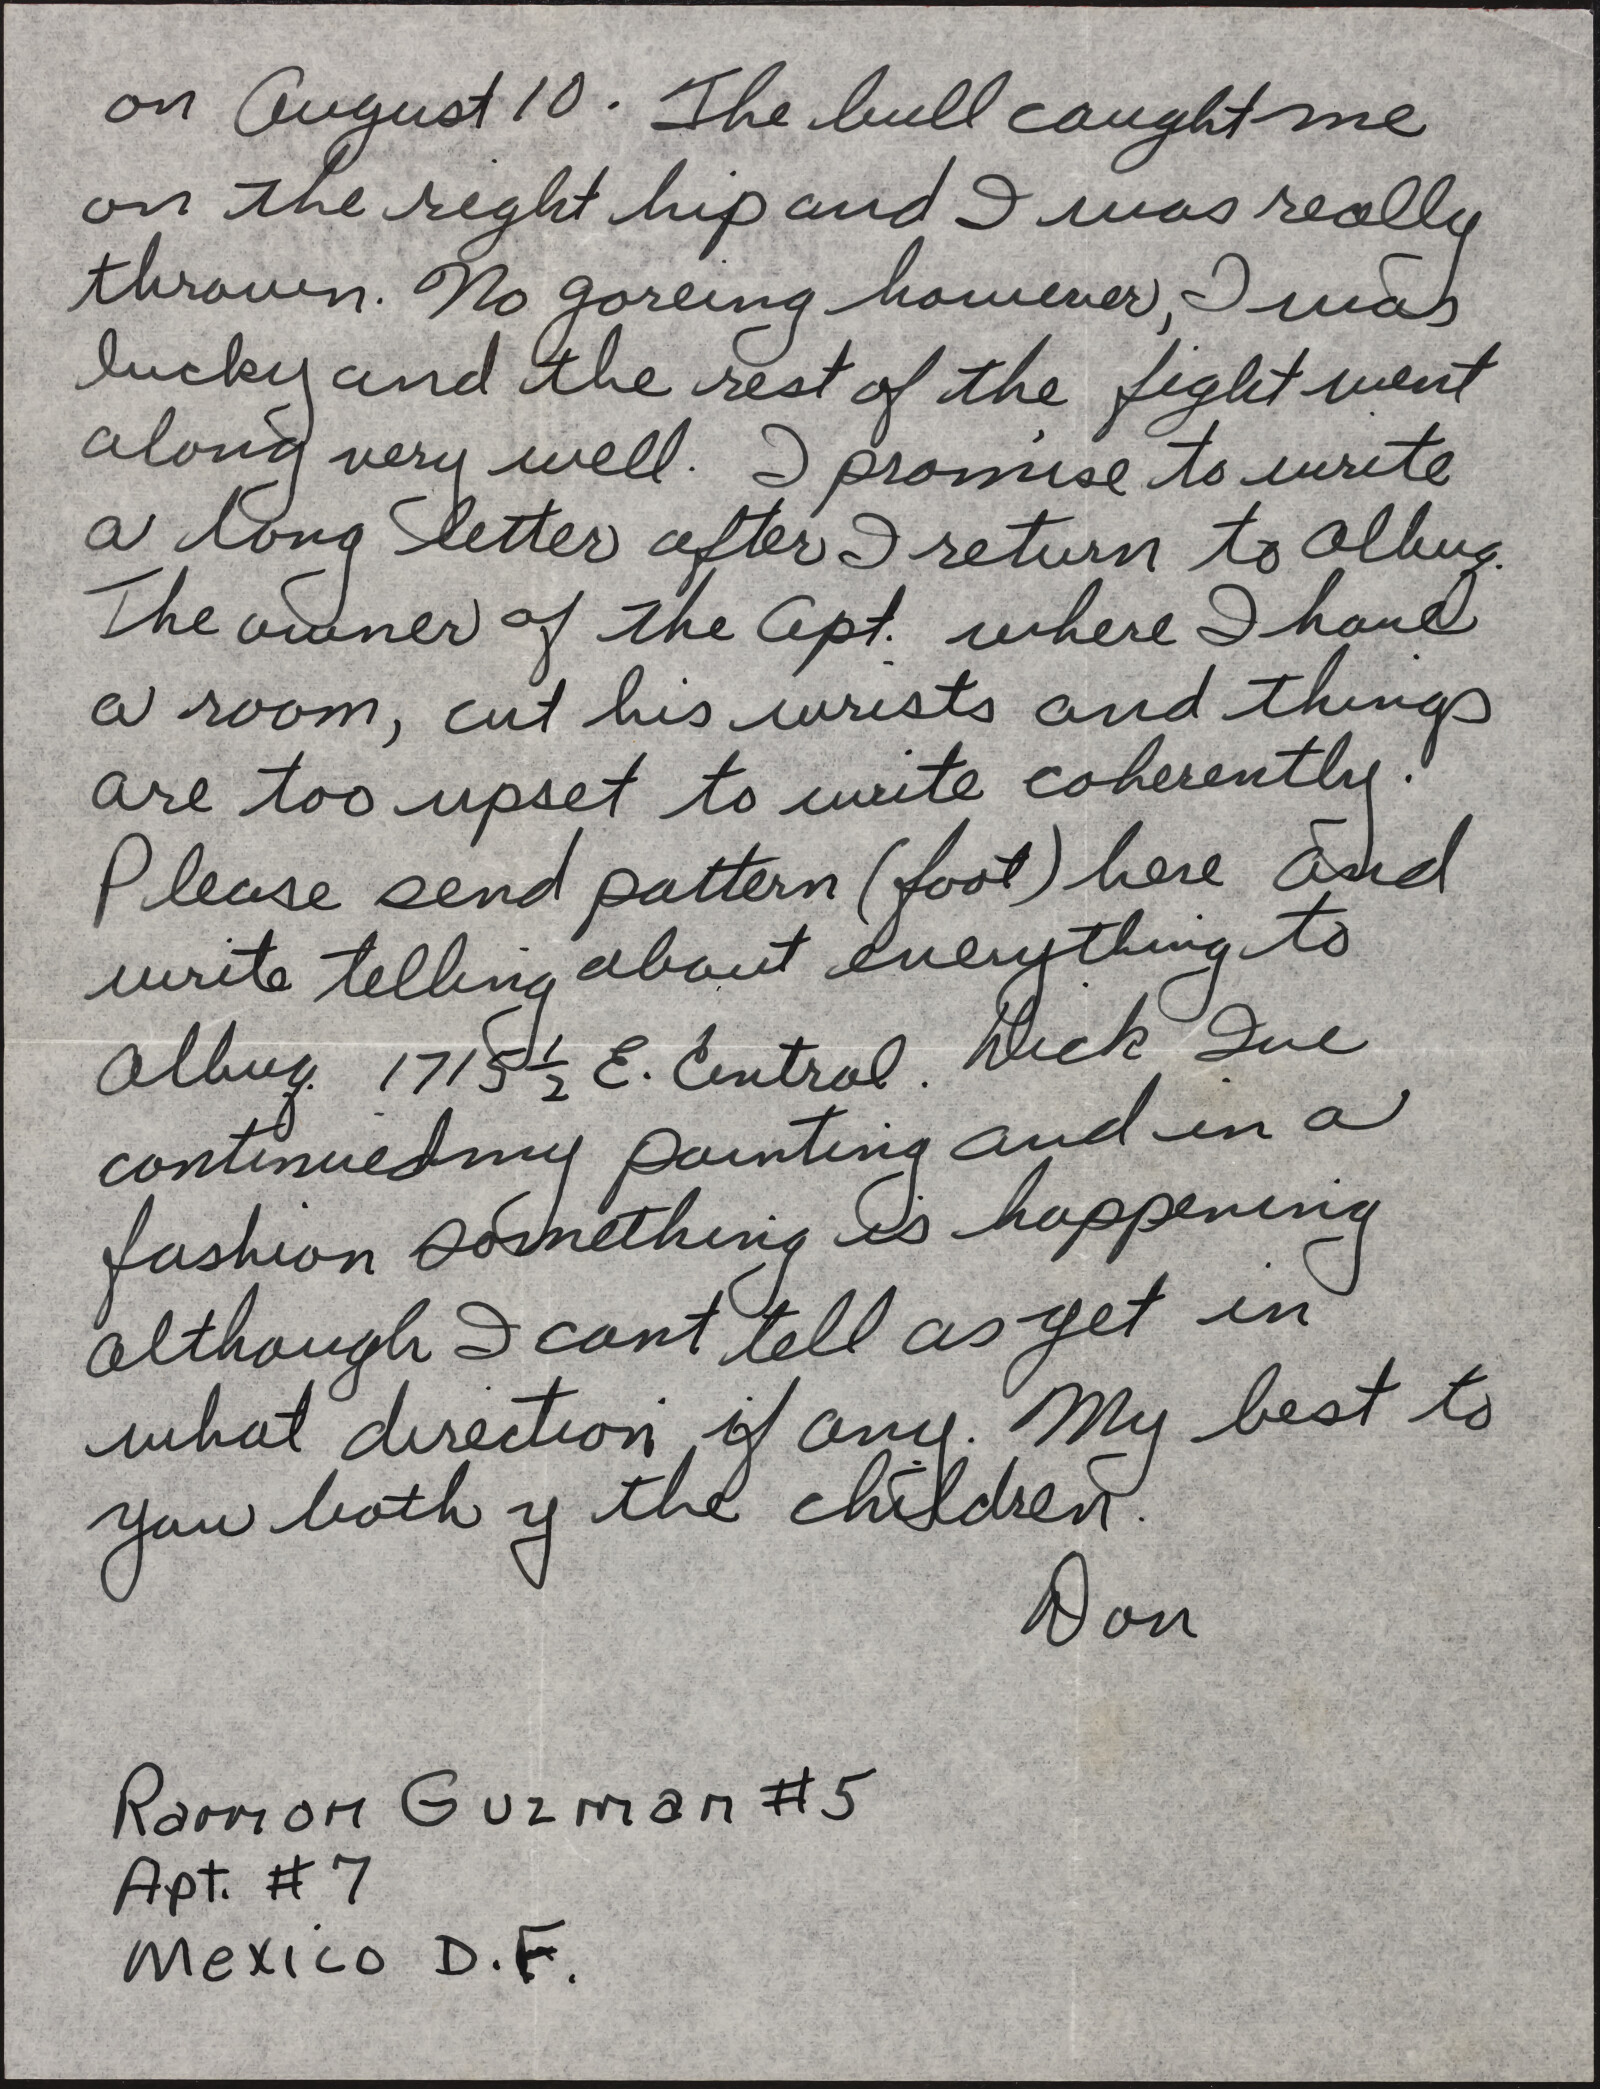 on August 10. The bull caught me
on the right hip and I was really
thrown. No goreing however, I was
lucky and the rest of the fight went
along very well. I promise to write
a long letter after I return to Albuq.
The owner of the Apt. where I have
a room, cut his wrists and things
are too upset to write coherently.
Please send pattern (foot) here and
write telling about everything to
Albuq. 1715 1/2 E. Central. Dick Ive
continued my painting and in a
fashion something is happening
although I cant tell as yet in
what direction if any. My best to
you both y the children.
Don
Ramon Guzman #5
Apt. #7
Mexico D.F.